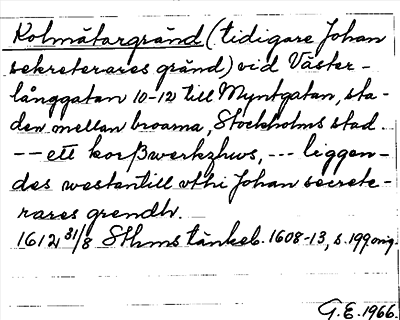 Kolmätargränd (tidigare Johan
sekreterares gränd) vid Väster-
långgatan 10-12 till Myntgatan, sta-
den mellan broarna, Stockholms stad.
-- ett korßwerkzhws, --- liggen-
des westantill vthi Johan secrete-
rares grendh.
1612 31/8 Sthms tänkeb. 1608-13, s. 199 orig.
G.E. 1966.